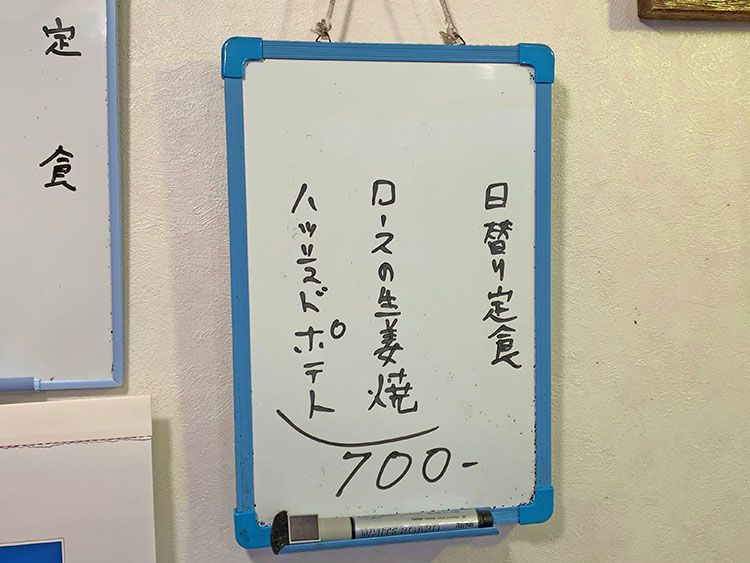 日替り定食
ロースの生姜焼
ハッシュドポテト
700-
定食
WHITE BOARD